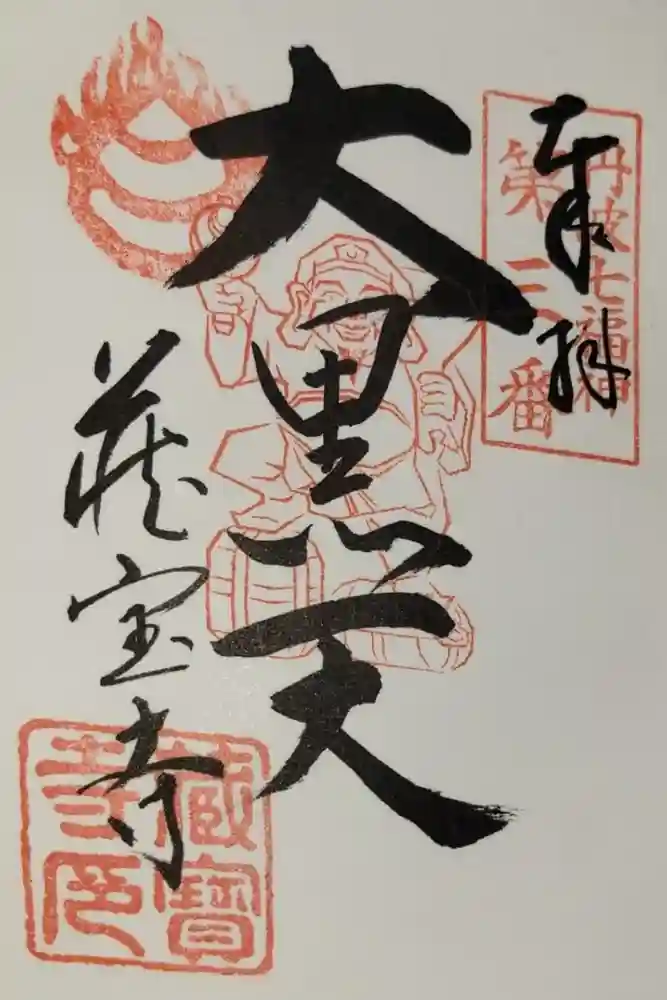 奉拝
丹波七福神
第三番
大黒天
蔵宝寺
蔵寶
寺印